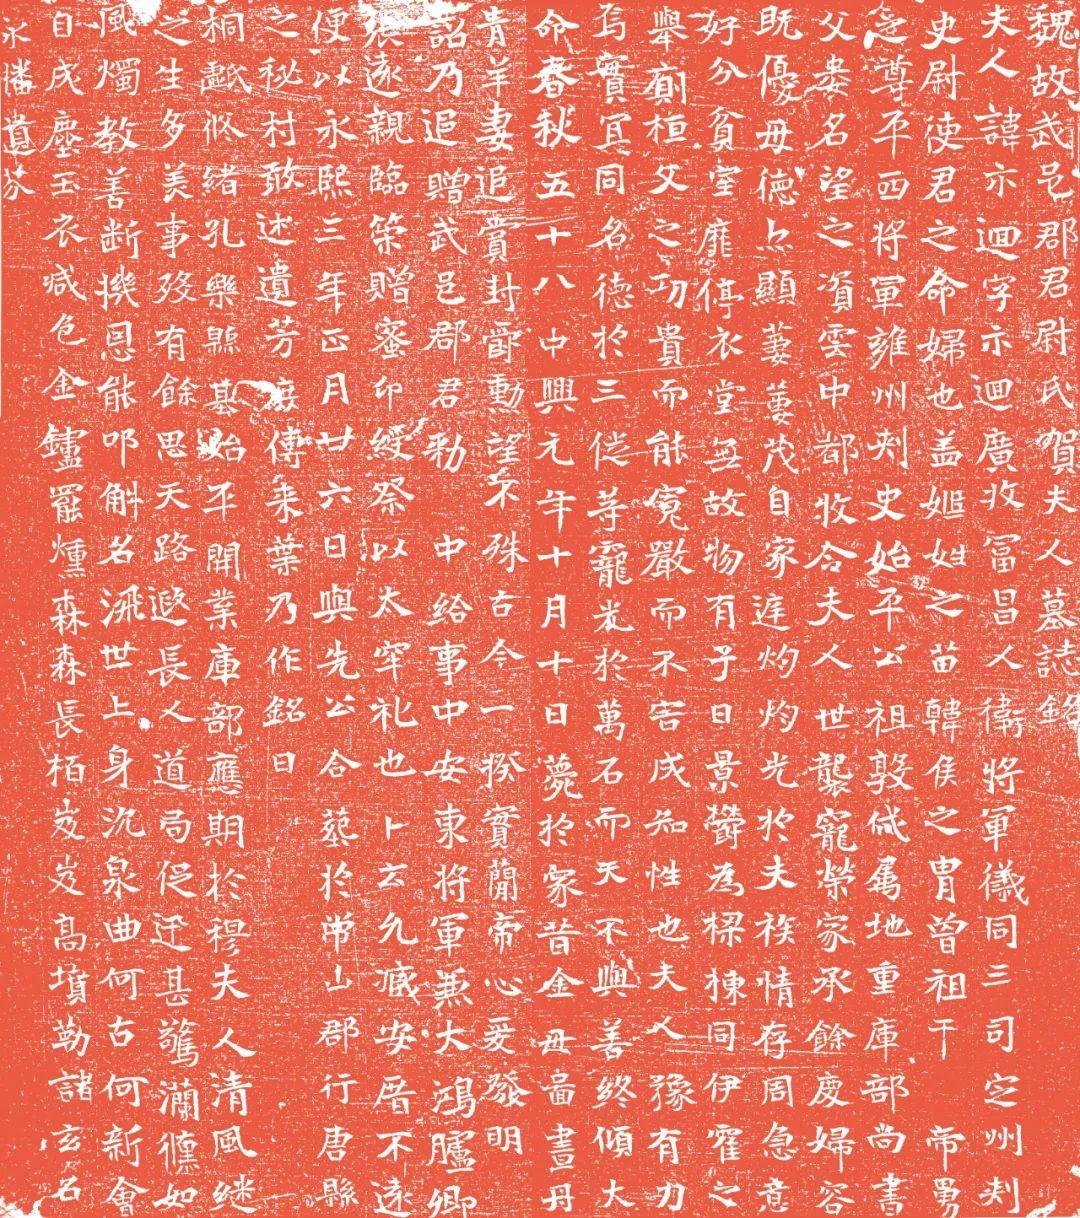 魏故武邑郡君尉氏賀夫人墓誌銘
夫人諱示迴字示迴廣牧冨昌人衛將軍儀同三司定州刾
史尉使君之命婦也盖姬姓之苗韓侯之胄曾祖干 帝舅
之尊平西將軍雍州刾史始平公祖敦俶庫部尚書
父婁名望之資雲中都牧合夫人世襲寵榮家承餘慶婦容
既優母德点顯萋萋茂自家庭灼灼光於夫族情存周急意
好分貧室靡停衣堂無故物有子曰景欝為樑棟同伊霍之
舉廁桓父之功貴而能寛嚴而不害成知性也夫人豫有力
焉實冥同名德於三徙等寵光於萬石而天不與善終傾大
命春秋五十八中興元年十月十日薨於家昔金母啚晝丹
青羊妻追賞封爵勲望不殊古今一揆實蕳帝心爰發明
詔乃追贈武邑郡君勑 中給事中安東將軍兼大鴻臚卿
張遂親臨策贈蜜印綬祭以太牢礼也卜云允臧安厝不遠
便以永熙三年正月廿六日與先公合葬於常山郡行唐縣
之秘村敢述遺芳庶傳来葉乃作銘曰
桐戱攸緒孔樂縣基始平開業庫部應期於穆夫人清風継
之生多美事歿有餘思天路遐長人道局促迁甚驚瀾儵如
風燭教善断機恩能叩斛名流世上身沉泉曲何古何新會
自成塵玉衣咸色金鑪罷燻森森長栢岌岌高墳勒諸玄石
永播遺芬